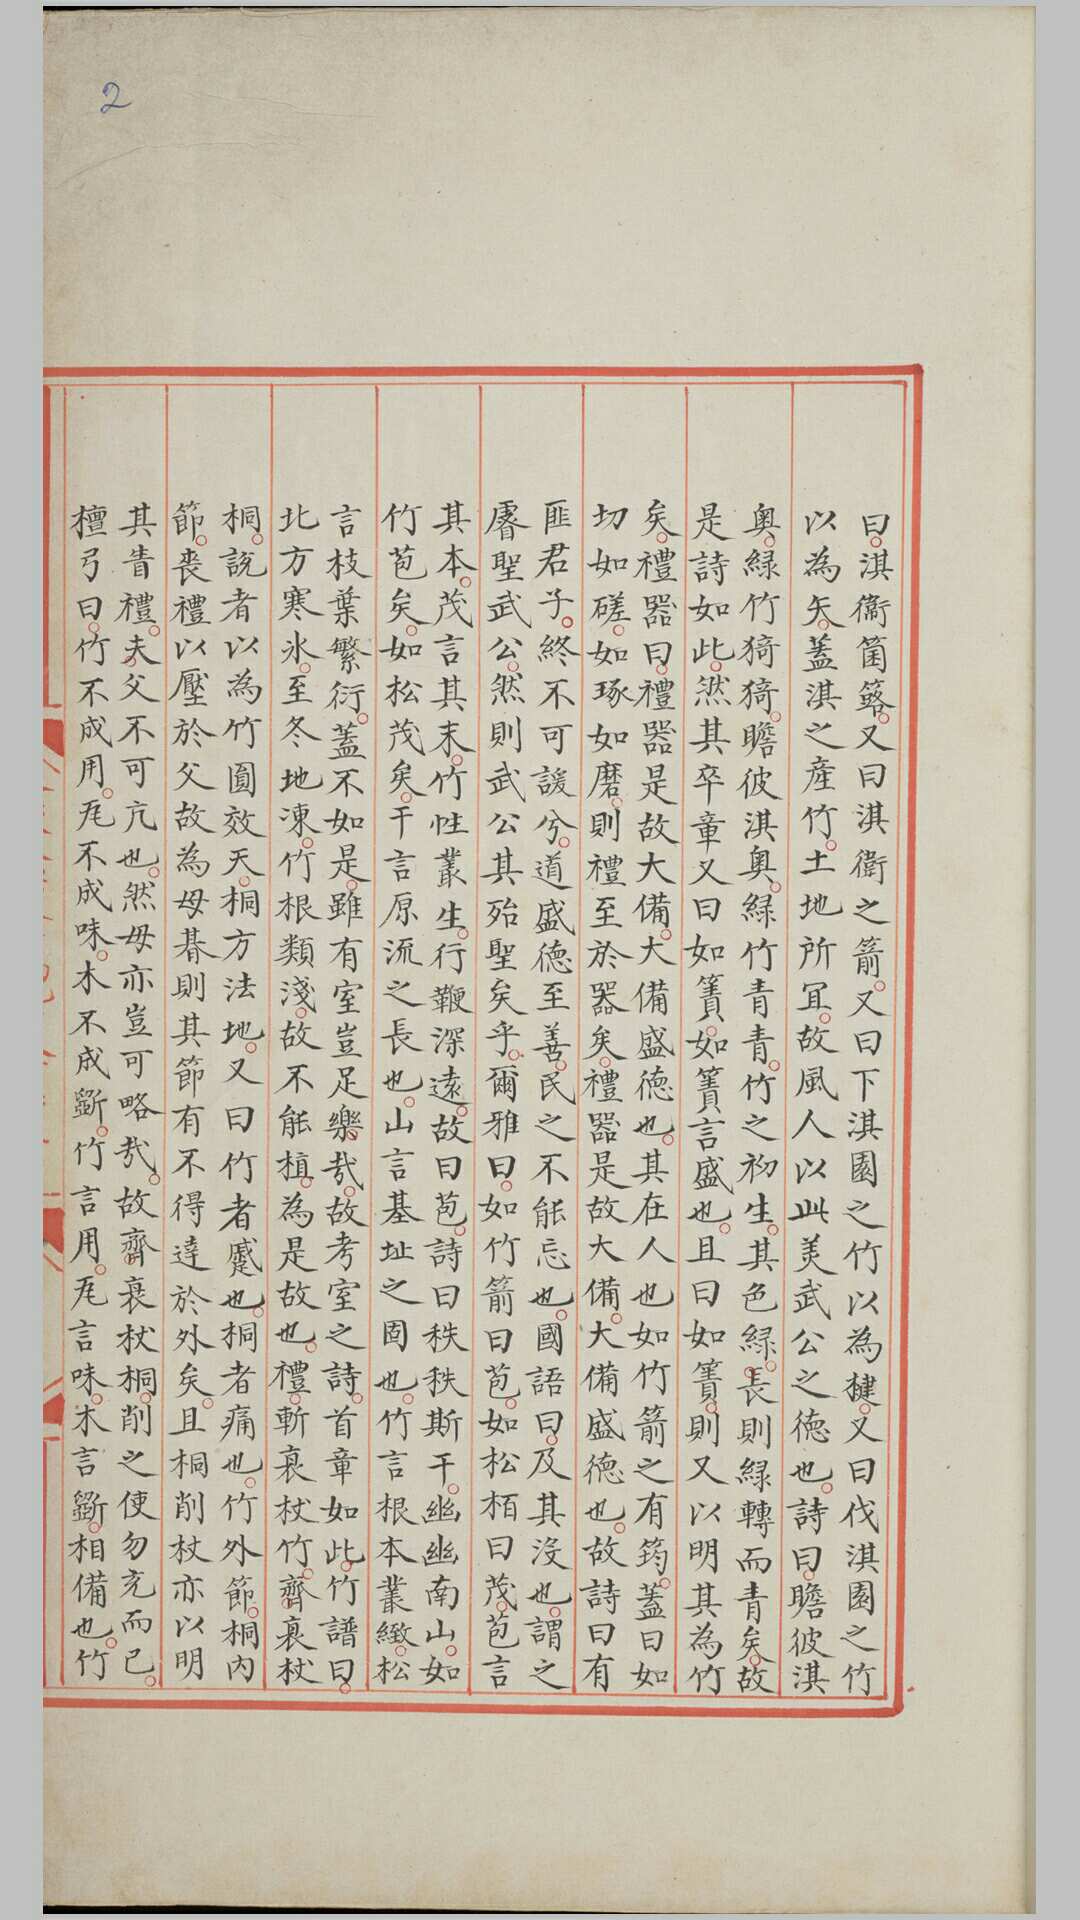 2
曰。淇衞箘簬。又曰淇衞之箭。又曰下淇園之竹以為楗。又曰伐淇園之竹
以為矢。蓋淇之產竹。土地所冝。故風人以此美武公之德也。詩曰。瞻彼淇
奧。綠竹猗猗。瞻彼淇奧。綠竹青青。竹之初生。其色綠。長則綠轉而青矣。故
是詩如此。然其卒章又曰如簀。如簀言盛也。且曰如簀。則又以明其為竹
矣。禮器曰。禮器是故大備。大備盛德也。其在人也如竹箭之有筠。蓋曰如
切如磋。如琢如磨。則禮至於器矣。禮器是故大備。大備盛德也。故詩曰有
匪君子。終不可諼兮。道盛德至善。民之不能忘也。國語曰。及其沒也。謂之
睿聖武公。然則武公其殆聖矣乎。爾雅曰。如竹箭曰苞。如松栢曰茂。苞言
其本。茂言其末。竹性叢生。行鞭深遠。故曰苞。詩曰秩秩斯干。幽幽南山。如
竹苞矣。如松茂矣。干言原流之長也。山言基址之固也。竹言根本叢緻。松
言枝葉繁衍。蓋不如是。雖有室豈足樂哉。故考室之詩。首章如此。竹譜曰。
北方寒氷。至冬地凍。竹根類淺。故不能植。為是故也。禮。斬衰杖竹。齊衰杖
桐。說者以為竹圓效天。桐方法地。又曰竹者蹙也。桐者痛也。竹外節。桐內
節。喪禮以壓於父故為母朞則其節有不得達於外矣。且桐削杖亦以明
其眚禮。夫父不可亢也。然母亦豈可略哉。故齊衰杖桐。削之使勿充而已。
檀弓曰。竹不成用。瓦不成味。木不成斵。竹言用。瓦言味。木言斵。相備也。竹